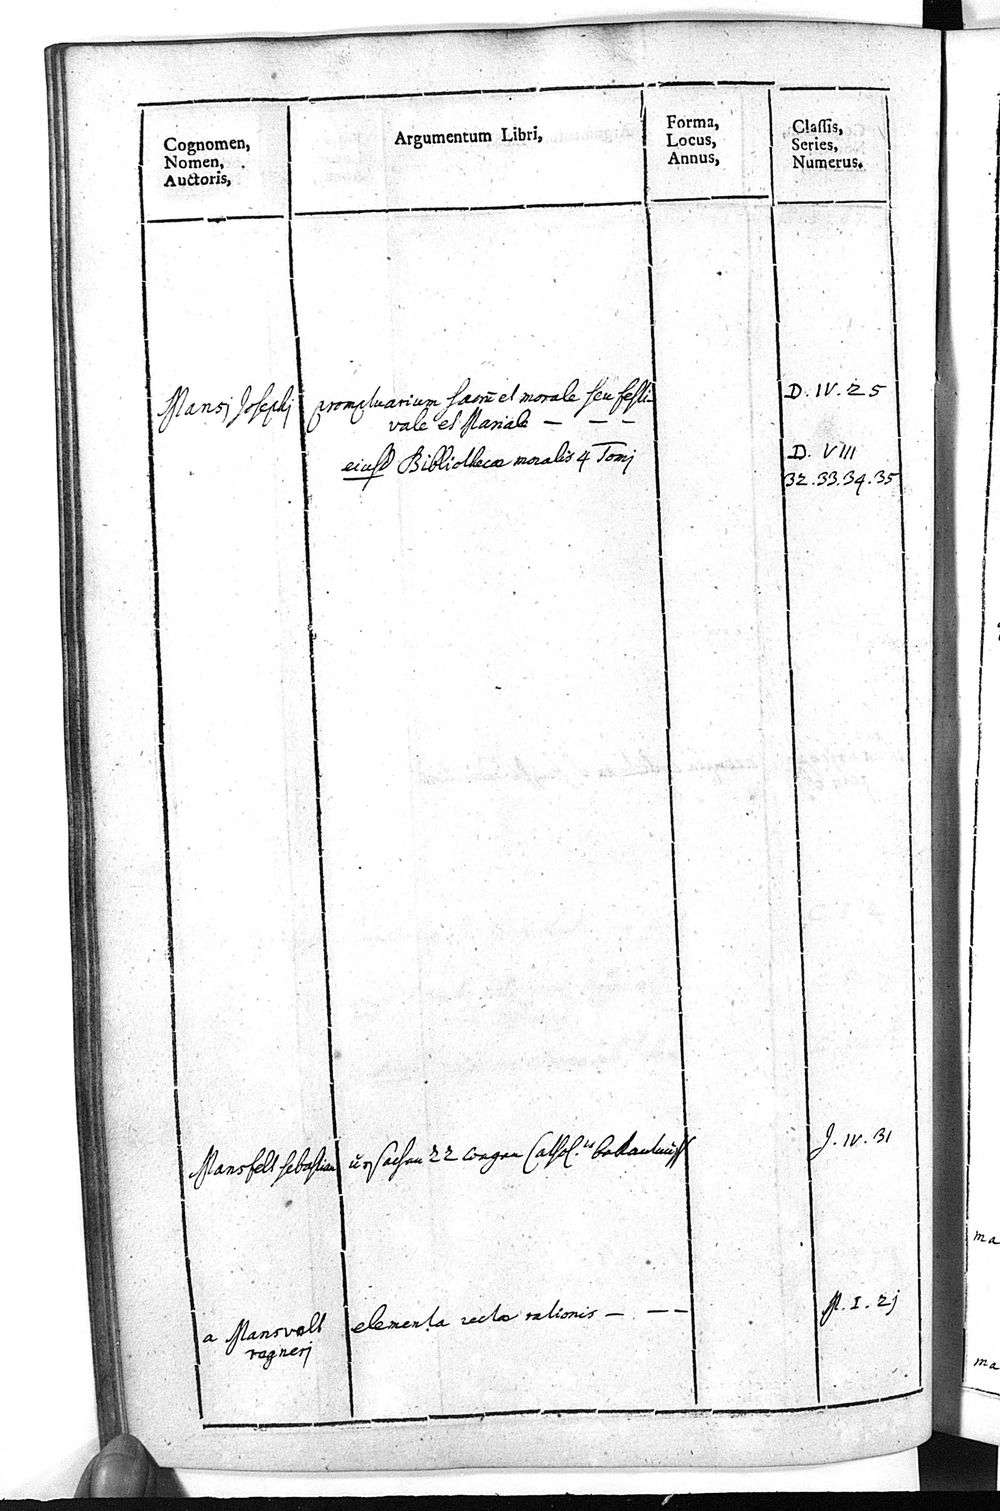 Cognomen,
Nomen,
Auctoris,
Argumentum Libri,
Forma,
Locus,
Annus,
Classis,
Series,
Numerus.
Mansj Josephj promptuarium sacrũ et morale seu festi D. IV. 25
vale et Mariale — — —
eiusd Bibliothecæ moralis 4 Tomj D. VIII
32.33.34.35
Mansfelt sebastian ursachen 22 wegen Cathol. J. IV. 31
a Mansvelt elementa rectæ rationis — — — M. I. 2j
ragnerj
ma
ma